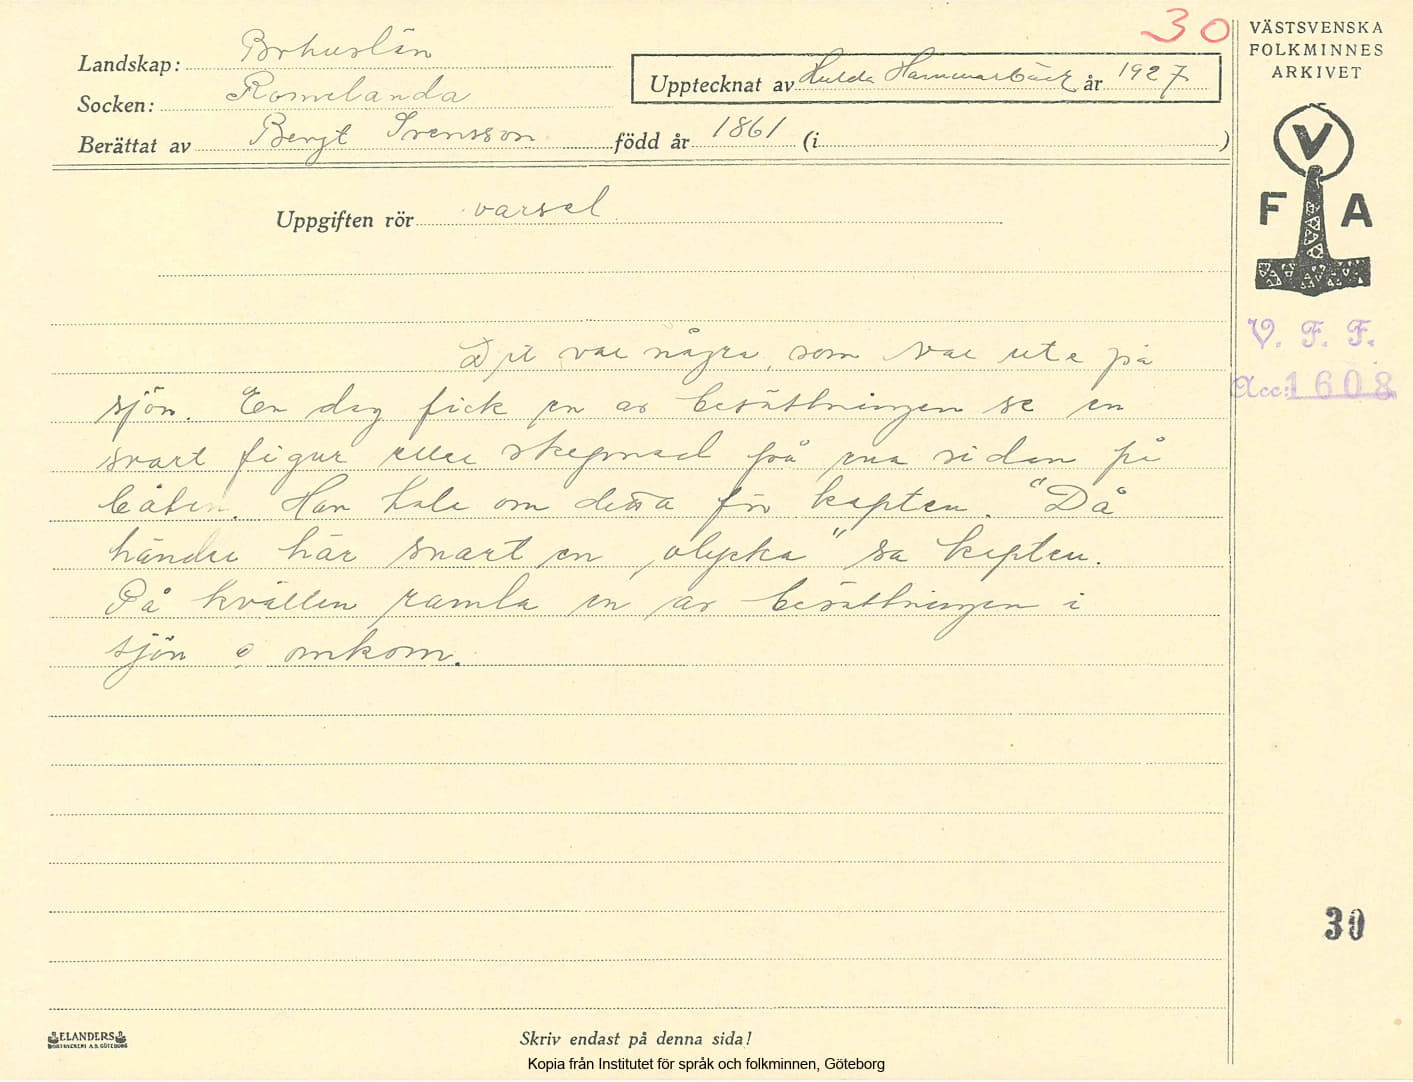 30
VÄSTSVENSKA
FOLKMINNES
ARKIVET
Landskap: Bohuslän
Upptecknat av Hulda Hammarbäck år 1927
Socken: Romelanda
Berättat av Bengt Svensson född år 1861 (i )
V
F A
Uppgiften rör varsel
V. F. F.
Acc: 1608
Det var några, som var ute på
sjön. En dag fick en av besättningen se en
svart figur eller skepnad på ena sidan på
båten. Han tala om detta för kapten. "Då
händer här snart en olycka" sa kapten.
På kvällen ramla en av besättningen i
sjön o omkom.
30
ELANDERS
BOKTRYCKERI A.B. GÖTEBORG
Skriv endast på denna sida!
Kopia från Institutet för språk och folkminnen, Göteborg